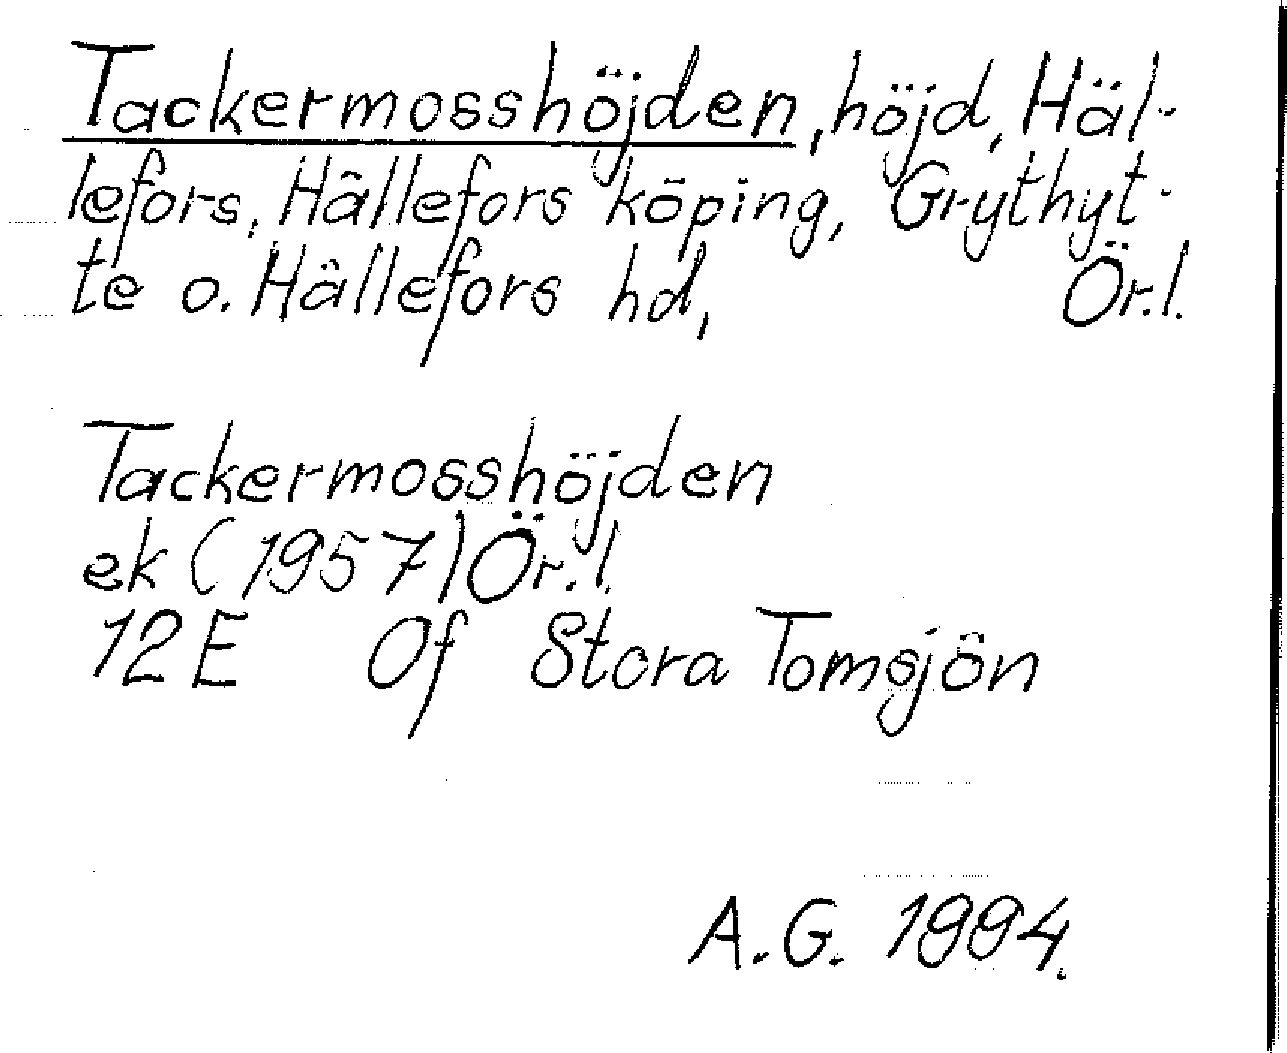 Tackermosshöjden, höjd, Häl-
lefors, Hällefors köping, Grythyt-
te o. Hällefors hd, Ör.l.
Tackermosshöjden
ek (1957) Ör.l.
12E 0f Stora Tomsjön
A.G. 1994.